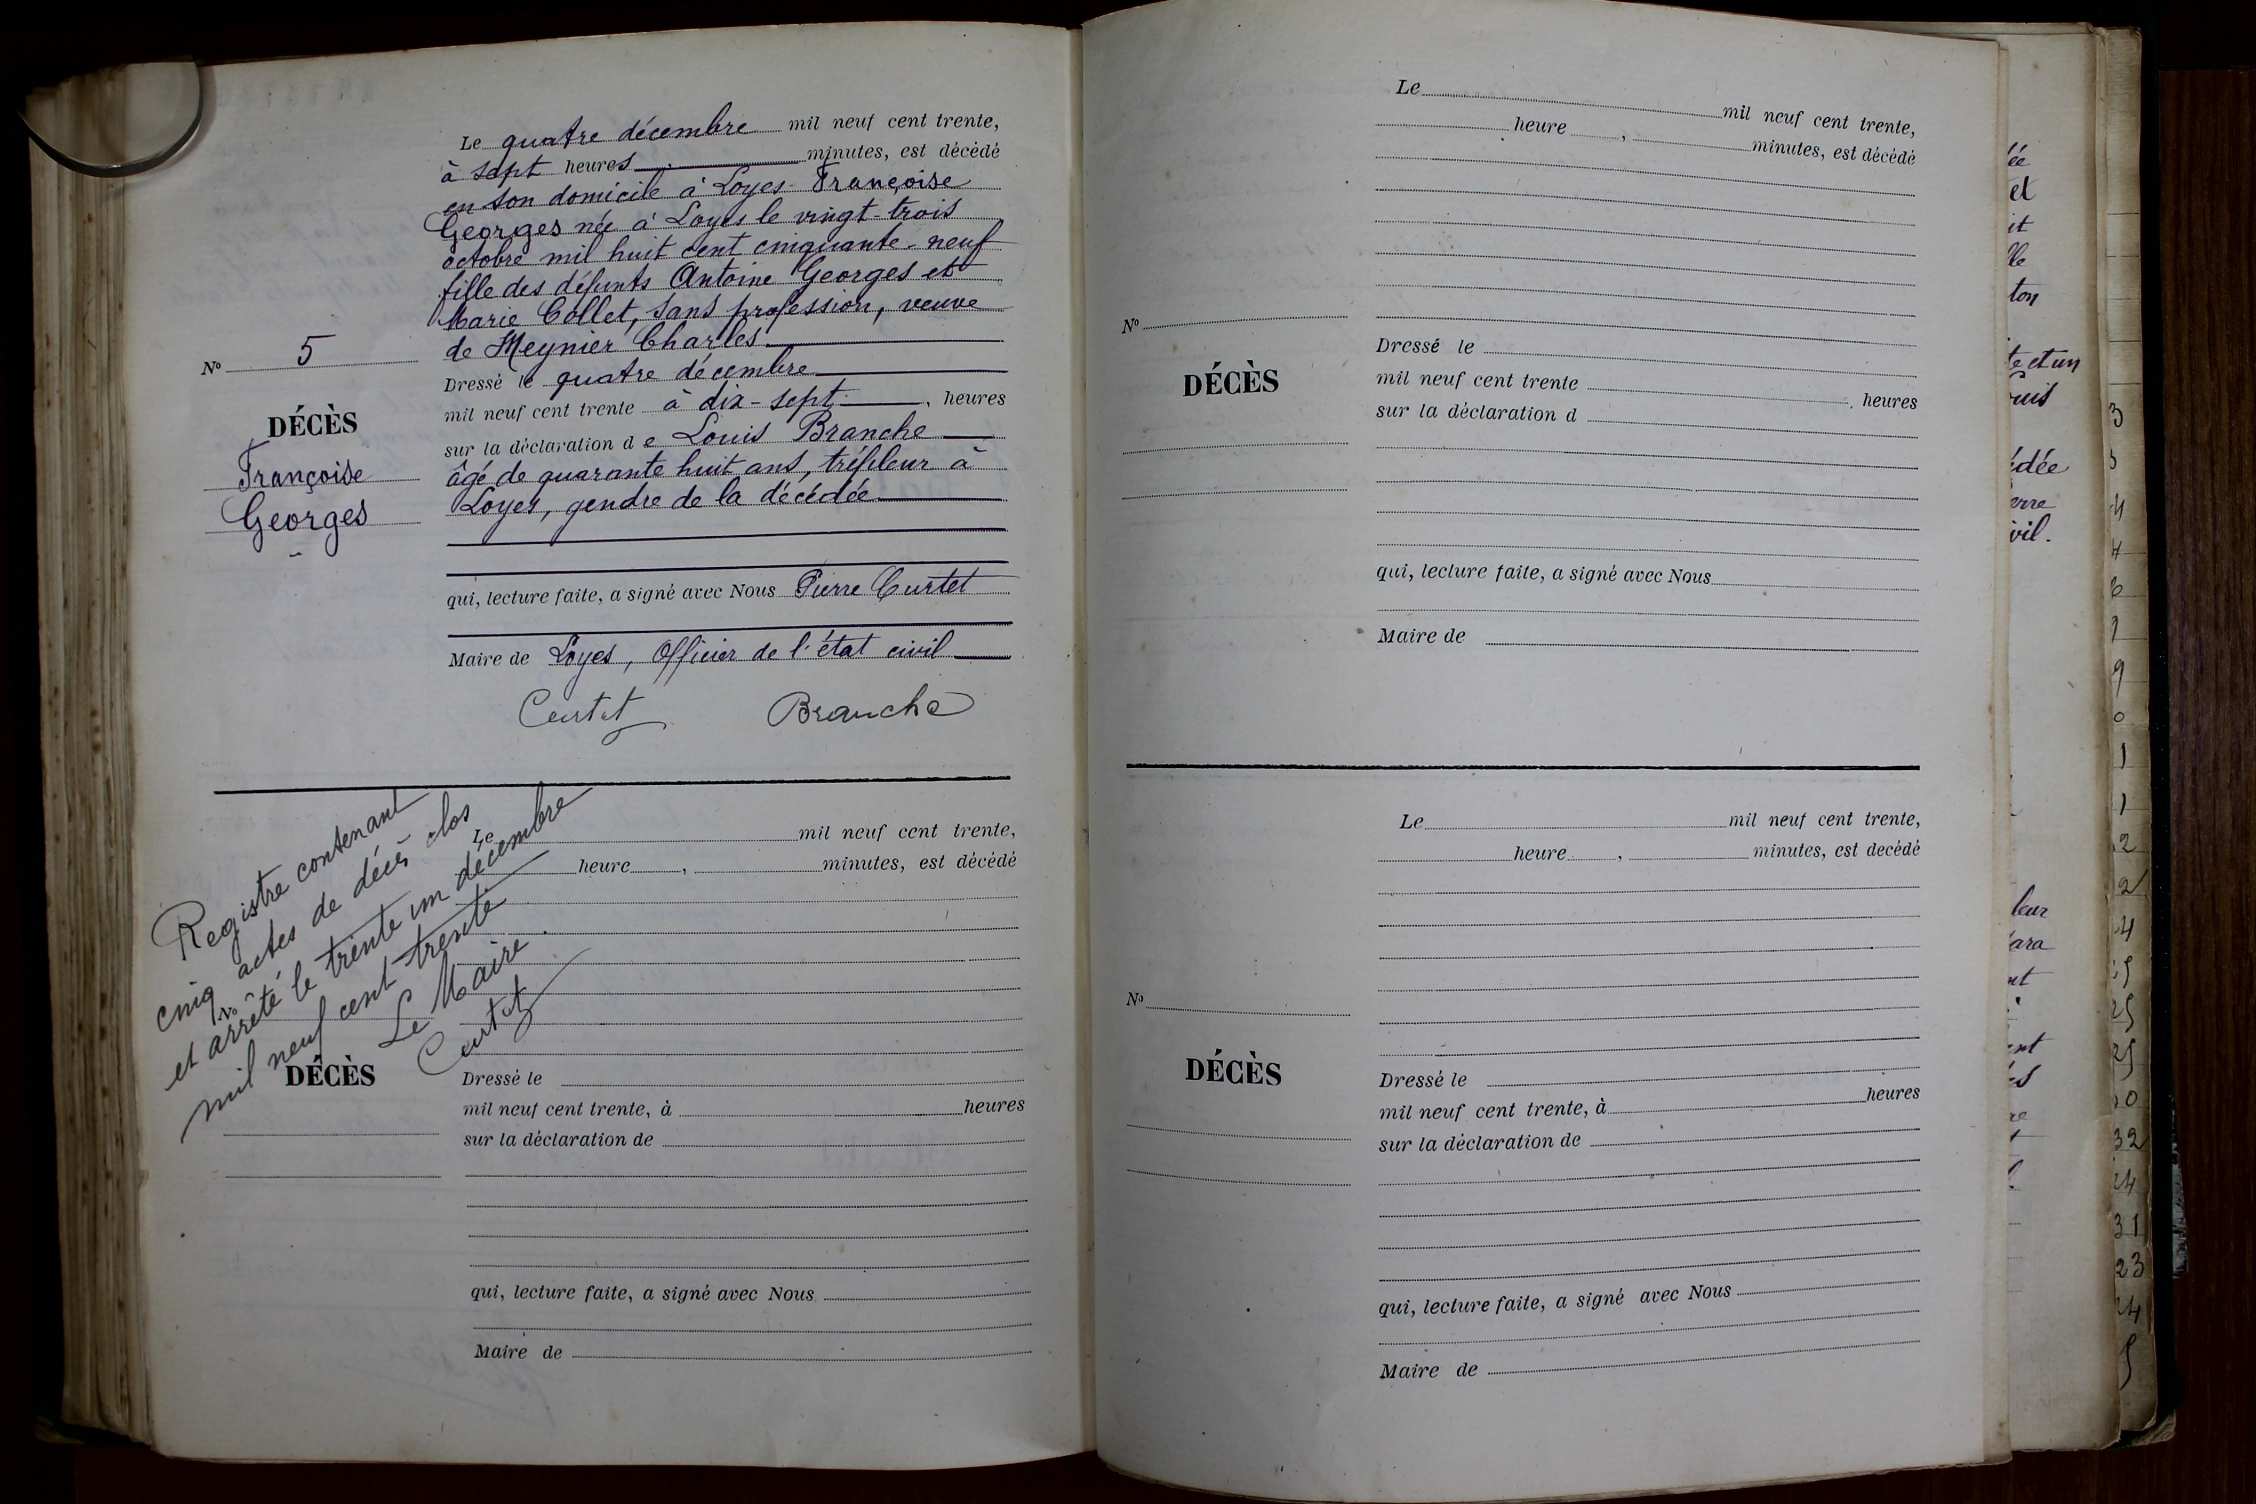 Le quatre décembre mil neuf cent trente,
à sept heures minutes, est décédé
en son domicile à Loyes Françoise
Georges née à Loyes le vingt-trois
octobre mil huit cent cinquante-neuf
fille des défunts Antoine Georges et
Marie Collet, sans profession, veuve
de Meynier Charles
Nº 5
DÉCÈS
Françoise
Georges
Dressé le quatre décembre
mil neuf cent trente à dix-sept, heures
sur la déclaration de Louis Branche
âgé de quarante huit ans, tréfileur à
Loyes, gendre de la décédée
qui, lecture faite, a signé avec Nous Pierre Curtet
Maire de Loyes, Officier de l'état civil
Curtet Branche
Registre contenant
cinq actes de décès clos
et arrêté le trente un décembre
mil neuf cent trente
Le Maire.
Curtet
Le mil neuf cent trente,
heure , minutes, est décédé
Nº
DÉCÈS
Dressé le
mil neuf cent trente, à heures
sur la déclaration de
qui, lecture faite, a signé avec Nous
Maire de
Le mil neuf cent trente,
heure , minutes, est décédé
Nº
DÉCÈS
Dressé le
mil neuf cent trente , heures
sur la déclaration d
qui, lecture faite, a signé avec Nous
Maire de
Le mil neuf cent trente,
heure , minutes, est decédé
Nº
DÉCÈS
Dressé le
mil neuf cent trente, à heures
sur la déclaration de
qui, lecture faite, a signé avec Nous
Maire de